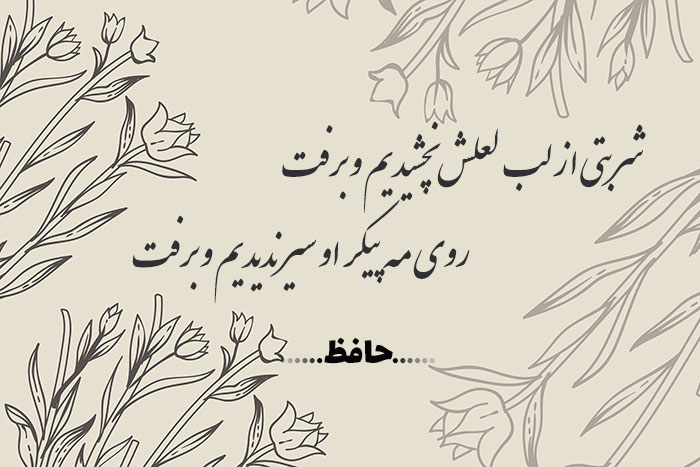 شربتی از لب لعلش نچشیدیم و برفت
روی مه پیکر او سیر ندیدیم و برفت
......حافظ......